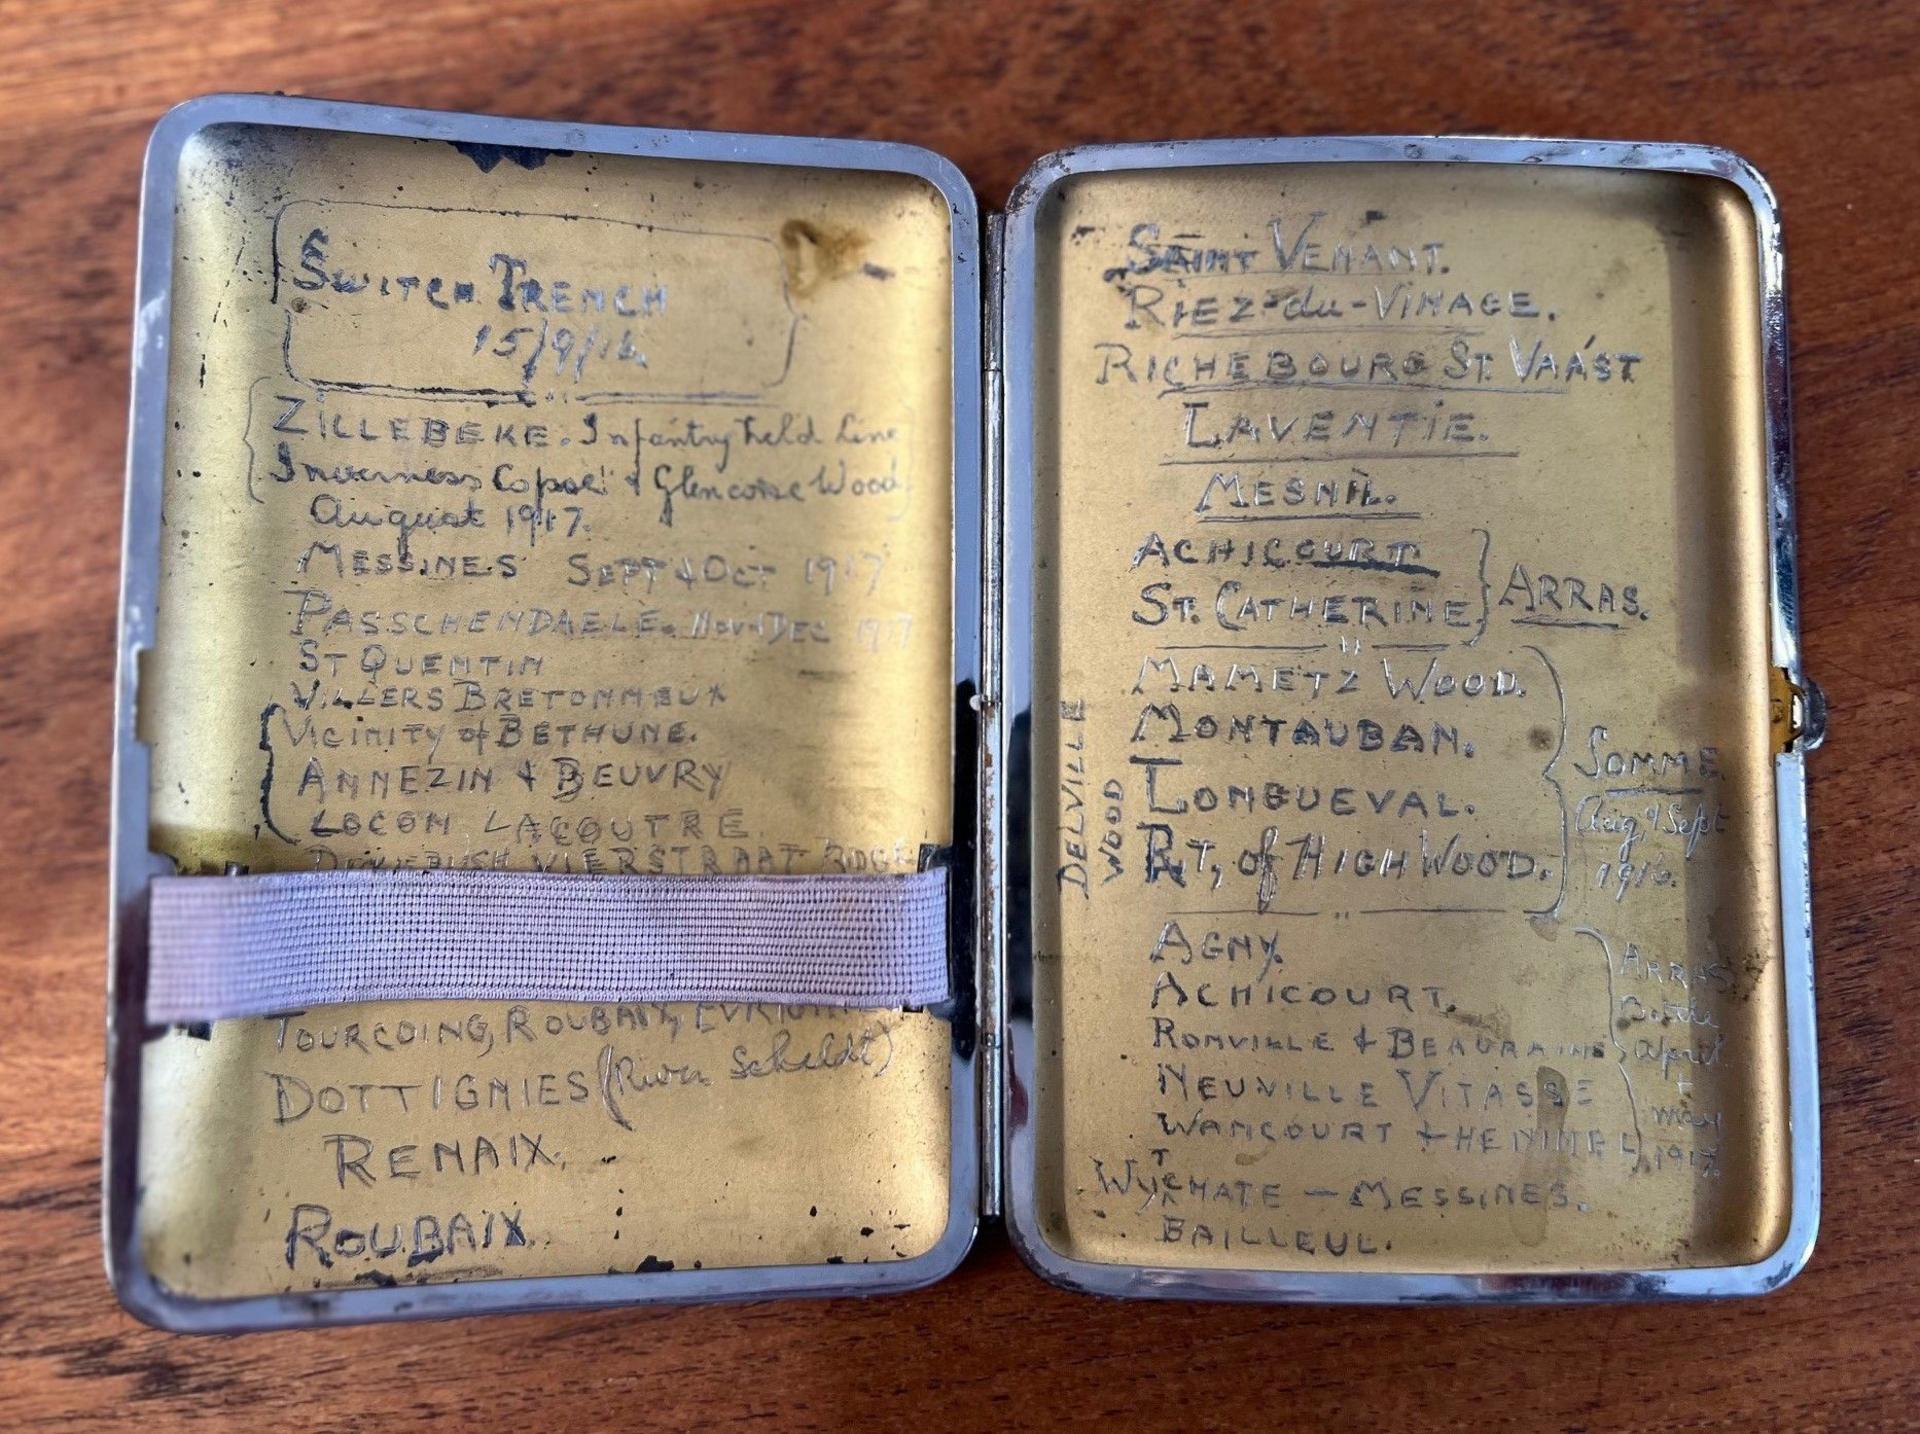 SWITCH TRENCH
15/9/16.
ZILLEBEKE. Infantry Held Line
Inverness Copse & Glencorse Wood
August 1917.
MESSINES SEPT & OCT 1917
PASSCHENDAELE. NOV & DEC 1917
ST QUENTIN
VILLERS BRETONNEUX
Vicinity of BETHUNE.
ANNEZIN & BEUVRY
LOCON LACOUTRE
VIERSTRAAT RIDGE
TOURCOING, ROUBAIX,
DOTTIGNIES (River Scheldt)
RENAIX.
ROUBAIX.
SAINT VENANT.
RIEZ-du-VINAGE.
RICHEBOURG ST. VAAST
LAVENTIE.
MESNIL.
ACHICOURT.
ST. CATHERINE
ARRAS.
DELVILLE WOOD
MAMETZ WOOD.
MONTAUBAN.
LONGUEVAL.
RT, of HIGH WOOD.
SOMME.
Aug, & Sept
1916.
AGNY.
ACHICOURT.
RONVILLE & BEAURAINS
NEUVILLE VITASSE
WANCOURT & HENINEL
ARRAS
Battle
April
+
May
1917.
WYTCHATE — MESSINES.
BAILLEUL.